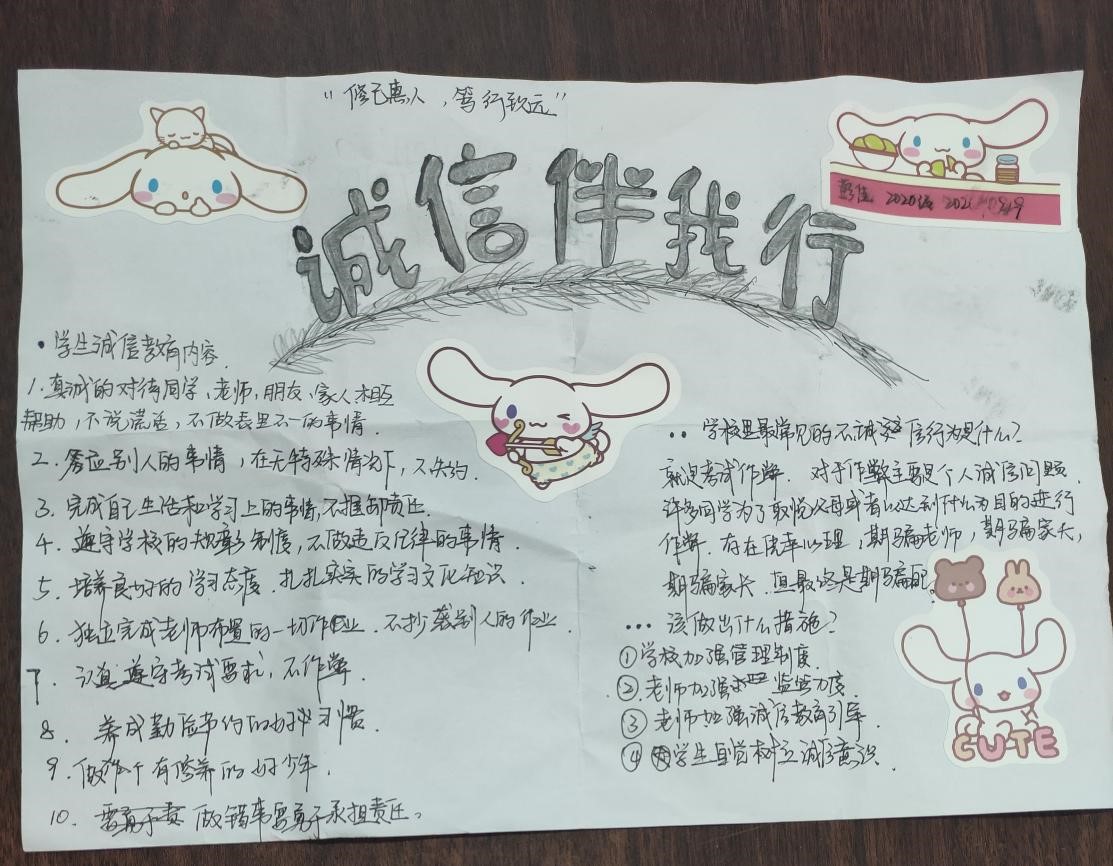 “修己惠人，笃行致远”
诚信伴我行
2020级
• 学生诚信教育内容.
1. 真诚的对待同学、老师，朋友、家人相互
帮助，不说谎话，不做表里不一的事情.
2. 答应别人的事情，在无特殊情况下，不失约.
3. 完成自己生活和学习上的事情,不推卸责任.
4. 遵守学校的规章制度，不做违反纪律的事情.
5. 培养良好的学习态度.扎扎实实的学习文化知识.
6. 独立完成老师布置的一切作业.不抄袭别人的作业.
7. 认真遵守考试要求，不作弊.
8. 养成勤俭节约的好习惯.
9. 做个有修养的好少年.
10. 做错事要勇于承担责任。
•• 学校里最常见的不诚信行为是什么？
就是考试作弊. 对于作弊主要是个人诚信问题.
许多同学为了取悦父母或者以达到什么为目的进行
作弊.存在侥幸心理，期骗老师，期骗家长，
期骗家长.但最终是期骗自己。
••• 该做出什么措施？
①学校加强管理制度.
②老师加强监管力度.
③老师加强诚信教育引导.
④学生自觉树立诚信意识.
CUTE